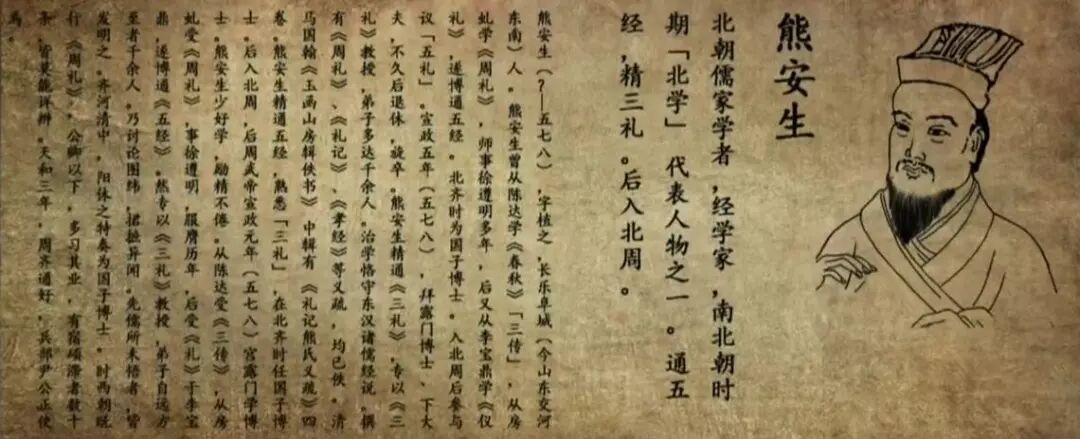 熊安生
北朝儒家学者,经学家,南北朝时
期「北学」代表人物之一。通五
经,精三礼。后入北周。
熊安生(?—五七八),字植之,长乐阜城(今山东交河
东南)人。熊安生曾从陈达学《春秋》「三传」,从房
虬学《周礼》,师事徐道明多年,后又从李宝鼎学《仪
礼》,遂博通五经。北齐时为国子博士。入北周后参与
议「五礼」。宣政五年(五七八),拜露门博士、下大
夫,不久后退休,旋卒。熊安生精通《三礼》,专以《三
礼》教授,弟子多达千余人。治学恪守东汉诸儒经说。撰
有《周礼》、《礼记》、《孝经》等义疏,均已佚。清
马国翰《玉函山房辑佚书》中辑有《礼记熊氏义疏》四
卷。熊安生精通五经,熟悉「三礼」,在北齐时任国子博
士。后入北周,后周武帝宣政元年(五七八)宫露门学博
士。熊安生少好学,励精不倦。从陈达受《三传》,从房
虬受《周礼》,事徐道明,服膺历年,后受《礼》于李宝
鼎,遂博通《五经》。然专以《三礼》教授,弟子自远方
至者千余人。乃讨论图纬,捃摭异闻。先儒所未悟者,皆
发明之。齐河清中,阳休之特奏为国子博士。时西朝既
行《周礼》,公卿以下,多习其业,有宿硕滞者数十
条,皆莫能详辨。天和三年,周齐通好,兵部尹公正使
焉。